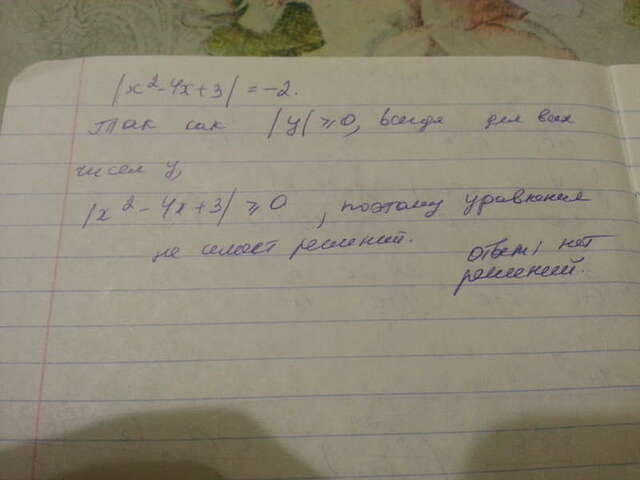 |x²-4x+3| = -2.
Так как |y| ≥ 0, всегда для всех
чисел y,
|x²-4x+3| ≥ 0, поэтому уравнения
не имеет решений.
ответ: нет
решений.